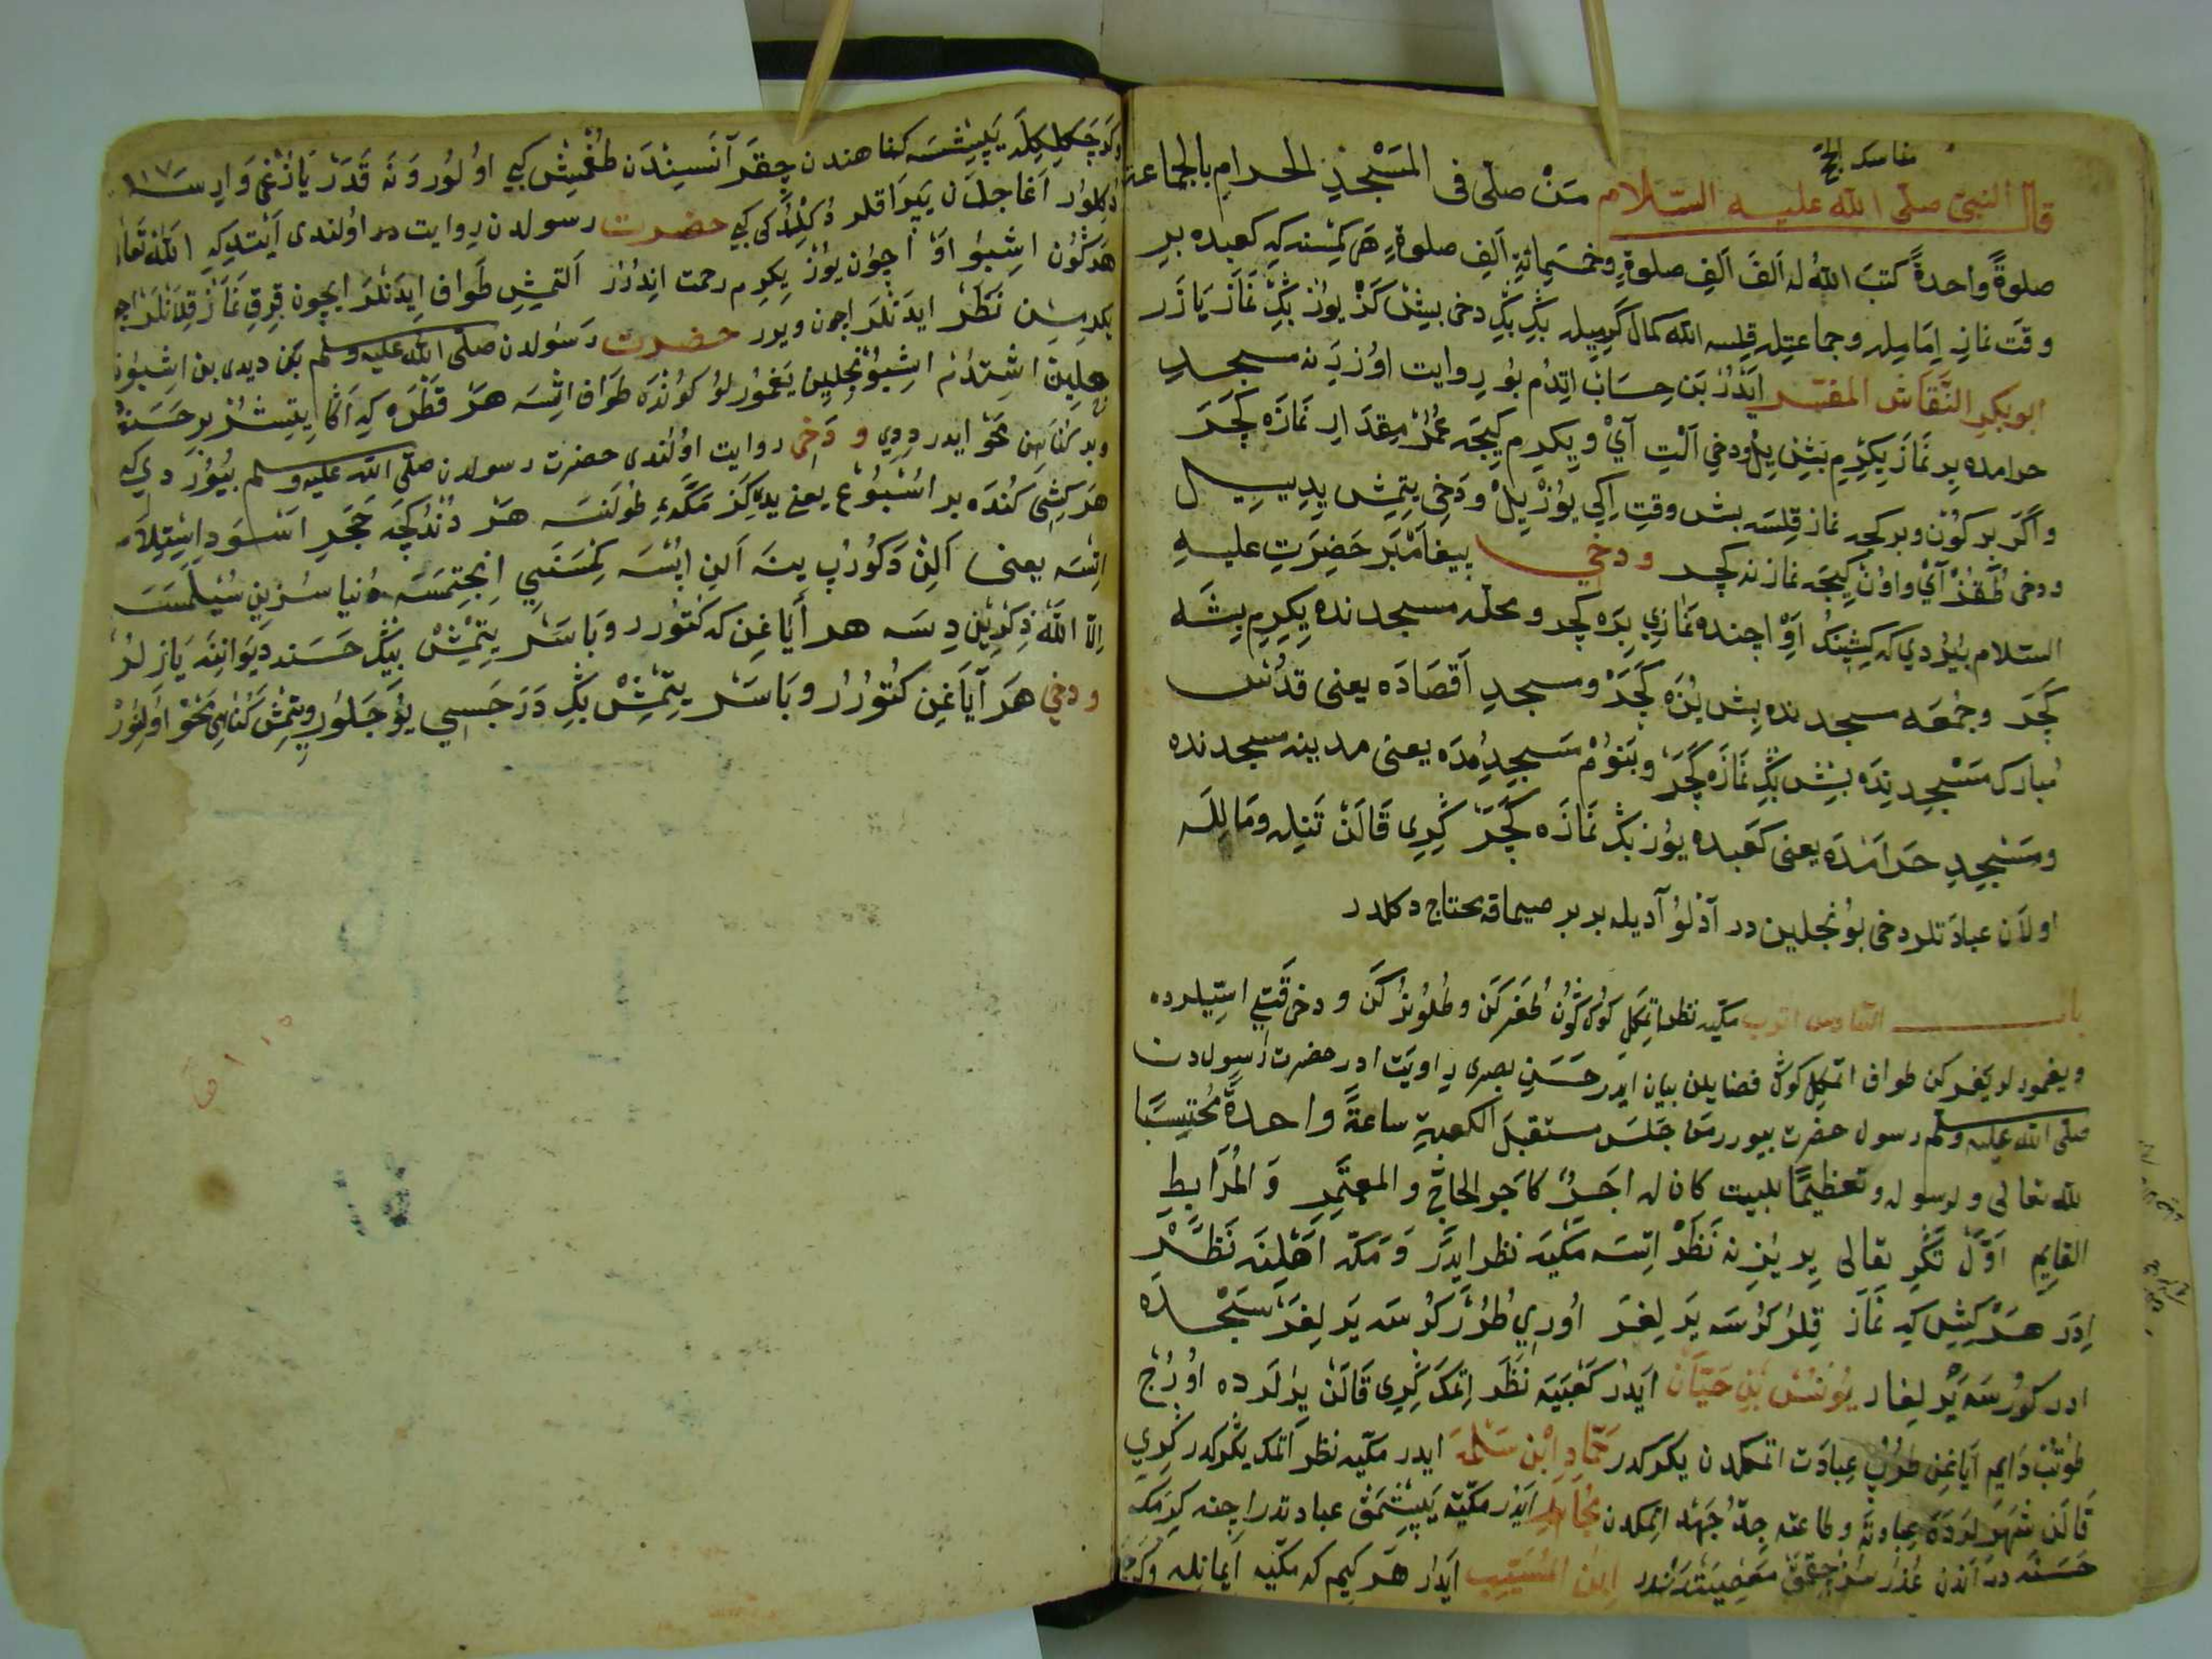 مناسك الحج
قال النبى صلى الله عليه السلام مَنْ صلّى فى المَسْجِدِ الحرامِ بالجماعة
صلوةً واحدةً كتبَ اللهُ له اَلفَ اَلفِ صلوةٍ وخَمسَمِائةِ اَلفِ صلوةٍ هر كمسنه كه كعبده بر
وقت نمازِ اِمامِله وجماعتِله قِلسه الله كمال كرميله بِڭ بِڭ دخى بيش كَزْ يوُز بِڭ نَمَازْ يَازَر
ابو بكرِ النَّقَاش المفسّر ايدُرْ بَن حِسَابْ اِتدُم بُو رِوايت اوُزرِنه مسجدِ
حرامده بِر نَمَاز يِكِرْم بَشْ يِلْ ودخى اَلْتِ آىْ ويِكِرم كِيجَه عُمُرْ مِقدَارِ نَمَازَه كَچَرَ
واكَر بر كوُن وبر كجه نماز قِلسَه بش وقت اِكِى يوُزْ يِلْ ودَخِى يتمِش يِدِ ييل
ودخى طُقُزْ آىْ واوُن كِيجَه نمازنه كچر ودخى پيغامْبَر حَضِرَتِ عليه
السّلام بيُرْدى كه كِشِينك اَوْ اِچنده نمازى بِرَه كچر ومحلّه مسجدنده يِكِرِم بِشَه
كَچَر وجُمعَه مسجدنده بِش يُزَه كَچَرْ ومسجدِ اَقصَادَه يعنى قدُس
مُبارك مَسْجِدِندَه بِش بِڭ نَمَازَه كَچَرْ وبَنوُمْ مَسجِدُمدَه يعنى مدينه مسجدنده
ومَسْجِدِ حَرامَندَه يعنى كعبده يوُز بِڭ نَمَازَه كَچَرْ كَرِى قَالَنْ تَنِله ومَالِلَه
اولاَن عبادَتلر دخى بوُنجلين در آدْلوُ آديله بر بر صيماقه محتاج دكلدر
باب السّادس اتوب مكّيه نظر اتمكل كوك كوُن طُغَركَن وطُلوُنُركَن ودخى قَتِى اسّيلرده
ويغمورلر يغركن طواف اتمكل كوك فضايلن بيان ايدر حَسَنِ بصرى رِوايَت ادر حضرت رسولدن
صلّى الله عليه وسلّم رسول حضرت بيورر مَن جَلسَ مستقبلَ الكعبةِ ساعةً واحدةً مُحْتِسبًا
لله تعالى ولرسوله وتعظيمًا للبيت كان له اجرٌ كاجر الحاجِّ والمعتَمِرِ وَالمُرَابِطِ
القايمِ اَوَّلْ تَڭرِ تعالى يِر يُزِنه نَظَرْ اِتسَه مكّيه نظر ايدَر وَمكّه اَهْلِنَه نَظَر
اِدَر هَرْ كِشِى كه نَمَازْ قِلُر كوُرْسَه يَرلِغَر اوُرِى طُرُر كوُرسَه يَرلِغَر سَجْدَه
ادر كوُرسَه يَرلِغار يُونُسْ بْنِ حَيّانْ ايدُر كَعْبَيَه نَظَر اِتمَكْ كَرِى قَالَنْ يِرلَرده اوُرُج
طوُتُبْ دَايِم اَيَاغِن طوُرُبْ عِبَادَت اتمكدن يكركدر حَمَّادِ ابْنِ سَلَمَه ايدر مكّيه نظر اتمك يكركدر كَرِى
قَالَن شَهِرَلَردَه عِبادته وطاعته جِدُّ جَهْد اتمكدن مُجَاهِد ايدُر مكّيه يَپِشمَق عبادتدر اِچنه كِرمَك
حَسَنَه در آندن عُذُرسُز چِقمَق مَعصِيَتدُر ابْنِ المُسَيَّبِ ايدُر هَر كِيم كه مكّيه اِيمانله وكر
وكرچكلكله يَپِشسَه كناهندن چِقَر آنَسِندَن طُغْمِش كبى اوُلوُر وَنَه قَدَرْ يَازُغِى وَارسَه ١١٧
دُكلوُر اَغاجلَن يَپرَاقلر دُكلدُكى كبى حضرت رسولدن رِوايت در اوُلندى اَيتدِ كه الله تَعالى
هر كوُن اشبُو اَوْ اِچوُن يوُز يِكِرم رحمت اِندُرُر اَلتمِش طَواف ايدَنلَر ايچون قِرق نَمَازْ قِلانلَر اچون
يكرمِسن نَظَرْ ايدَنلَر اچون ويرر حضرت رَسولدن صلّى الله عليه وسلّم بَن ديدى بن اشبوُن
جلين اِشتدُم اشبوُنجِلين يَغموُرلوُ كوُندَه طَواف اتسَه هر قَطْرَه كه آكا يتشُر بر حَسَنه
وبر كُناهِن مَحْو ايدر دِدى ودَخى روايت اوُلندى حضرت رسولدن صلّى الله عليه وسلم بيُوُر دى كه
هر كِشِى كُندَه بر اُسْبُوُع يعنى يدى كَز مكّهيِ طولَنسَه هر دُندُكچَه حَجَرِ اَسْوَدِ اِستِلام
اتسَه يعنى اَلِن دَكوُرُب ينَه اَلن ابْسَه كِمسَنَيى اِنجتمَسَه دُنيا سُزِين سُيلَمَسَه
اِلاّ الله ذِكرِيْن دِسَه هر اَيَاغِن كه كتُورر وبَاسَرْ يتمِشْ بيڭ حَسَنه ديوَانِنَه يازلُر
ودخى هَر آيَاغِن كتُورُر وبَاسَر يتمِشْ بِڭ دَرَجَسِى يوُجَلوُر ويتمِش كناهى مَحْو اوُلنُور